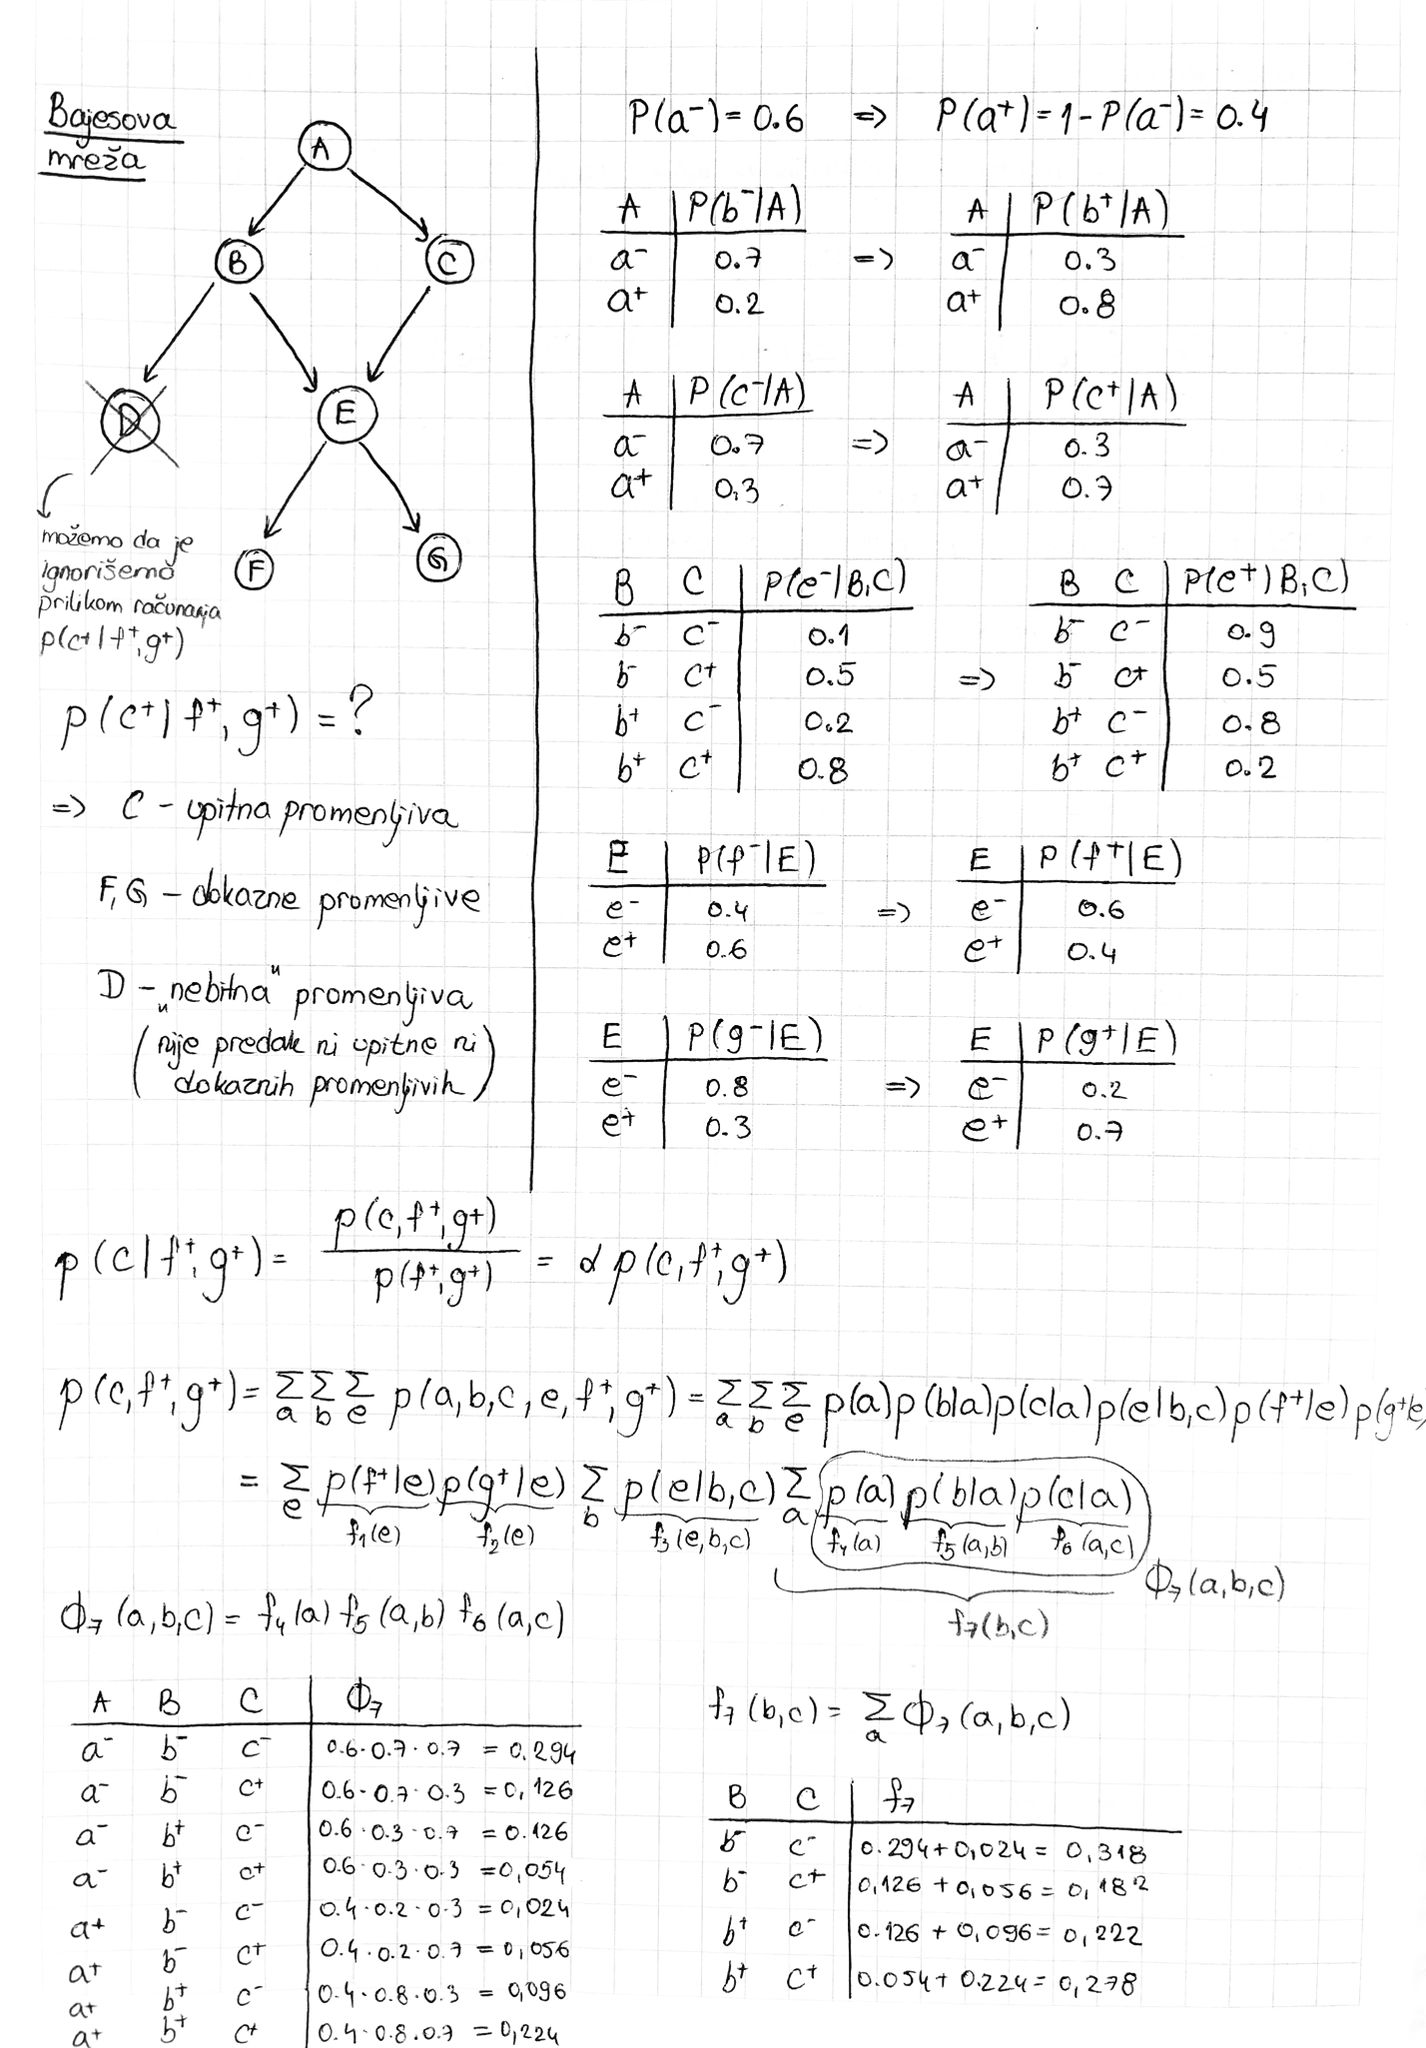 Bajesova
mreža
A
B
C
D
E
F
G
možemo da je
ignorišemo
prilikom računanja
p(c⁺|f⁺,g⁺)
p(c⁺|f⁺,g⁺)=?
=> C - upitna promenljiva
F,G - dokazne promenljive
D - „nebitna" promenljiva
(nije predak ni upitne ni
dokaznih promenljivih)
P(a⁻)=0.6 => P(a⁺)=1-P(a⁻)=0.4
A | P(b⁻|A) A | P(b⁺|A)
a⁻ 0.7 => a⁻ 0.3
a⁺ 0.2 a⁺ 0.8
A | P(c⁻|A) A | P(c⁺|A)
a⁻ 0.7 => a⁻ 0.3
a⁺ 0.3 a⁺ 0.7
B C | p(e⁻|B,C) B C | p(e⁺|B,C)
b⁻ c⁻ 0.1 b⁻ c⁻ 0.9
b⁻ c⁺ 0.5 => b⁻ c⁺ 0.5
b⁺ c⁻ 0.2 b⁺ c⁻ 0.8
b⁺ c⁺ 0.8 b⁺ c⁺ 0.2
E | p(f⁻|E) E | p(f⁺|E)
e⁻ 0.4 => e⁻ 0.6
e⁺ 0.6 e⁺ 0.4
E | p(g⁻|E) E | p(g⁺|E)
e⁻ 0.8 => e⁻ 0.2
e⁺ 0.3 e⁺ 0.7
p(c|f⁺,g⁺) = p(c,f⁺,g⁺) / p(f⁺,g⁺) = α p(c,f⁺,g⁺)
p(c,f⁺,g⁺) = Σₐ Σ_b Σₑ p(a,b,c,e,f⁺,g⁺) = Σₐ Σ_b Σₑ p(a)p(b|a)p(c|a)p(e|b,c)p(f⁺|e)p(g⁺|e)
= Σₑ p(f⁺|e) p(g⁺|e) Σ_b p(e|b,c) Σₐ p(a) p(b|a) p(c|a)
f₁(e) f₂(e) f₃(e,b,c) f₄(a) f₅(a,b) f₆(a,c)
Φ₇(a,b,c)
f₇(b,c)
Φ₇(a,b,c) = f₄(a) f₅(a,b) f₆(a,c)
A B C | Φ₇
a⁻ b⁻ c⁻ 0.6·0.7·0.7 = 0.294
a⁻ b⁻ c⁺ 0.6·0.7·0.3 = 0,126
a⁻ b⁺ c⁻ 0.6·0.3·0.7 = 0.126
a⁻ b⁺ c⁺ 0.6·0.3·0.3 = 0,054
a⁺ b⁻ c⁻ 0.4·0.2·0.3 = 0,024
a⁺ b⁻ c⁺ 0.4·0.2·0.7 = 0,056
a⁺ b⁺ c⁻ 0.4·0.8·0.3 = 0,096
a⁺ b⁺ c⁺ 0.4·0.8·0.7 = 0,224
f₇(b,c) = Σₐ Φ₇(a,b,c)
B C | f₇
b⁻ c⁻ 0.294+0,024 = 0,318
b⁻ c⁺ 0,126+0,056 = 0,182
b⁺ c⁻ 0.126+0,096 = 0,222
b⁺ c⁺ 0.054+0.224 = 0,278